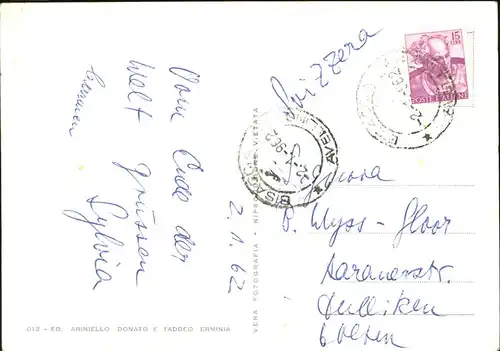 Vom Ende der
Welt grüssen
Sylvia
2.1.62
Svizzera
15
LIRE
POSTE ITALIANE
BISACCIA
AVELLINO
-962
P. Wyss-Gloor
Aarauerstr.
Dulliken
Olten
VERA FOTOGRAFIA - RIPRODUZIONE VIETATA
012 - ED. ARINIELLO DONATO E TADDEO ERMINIA